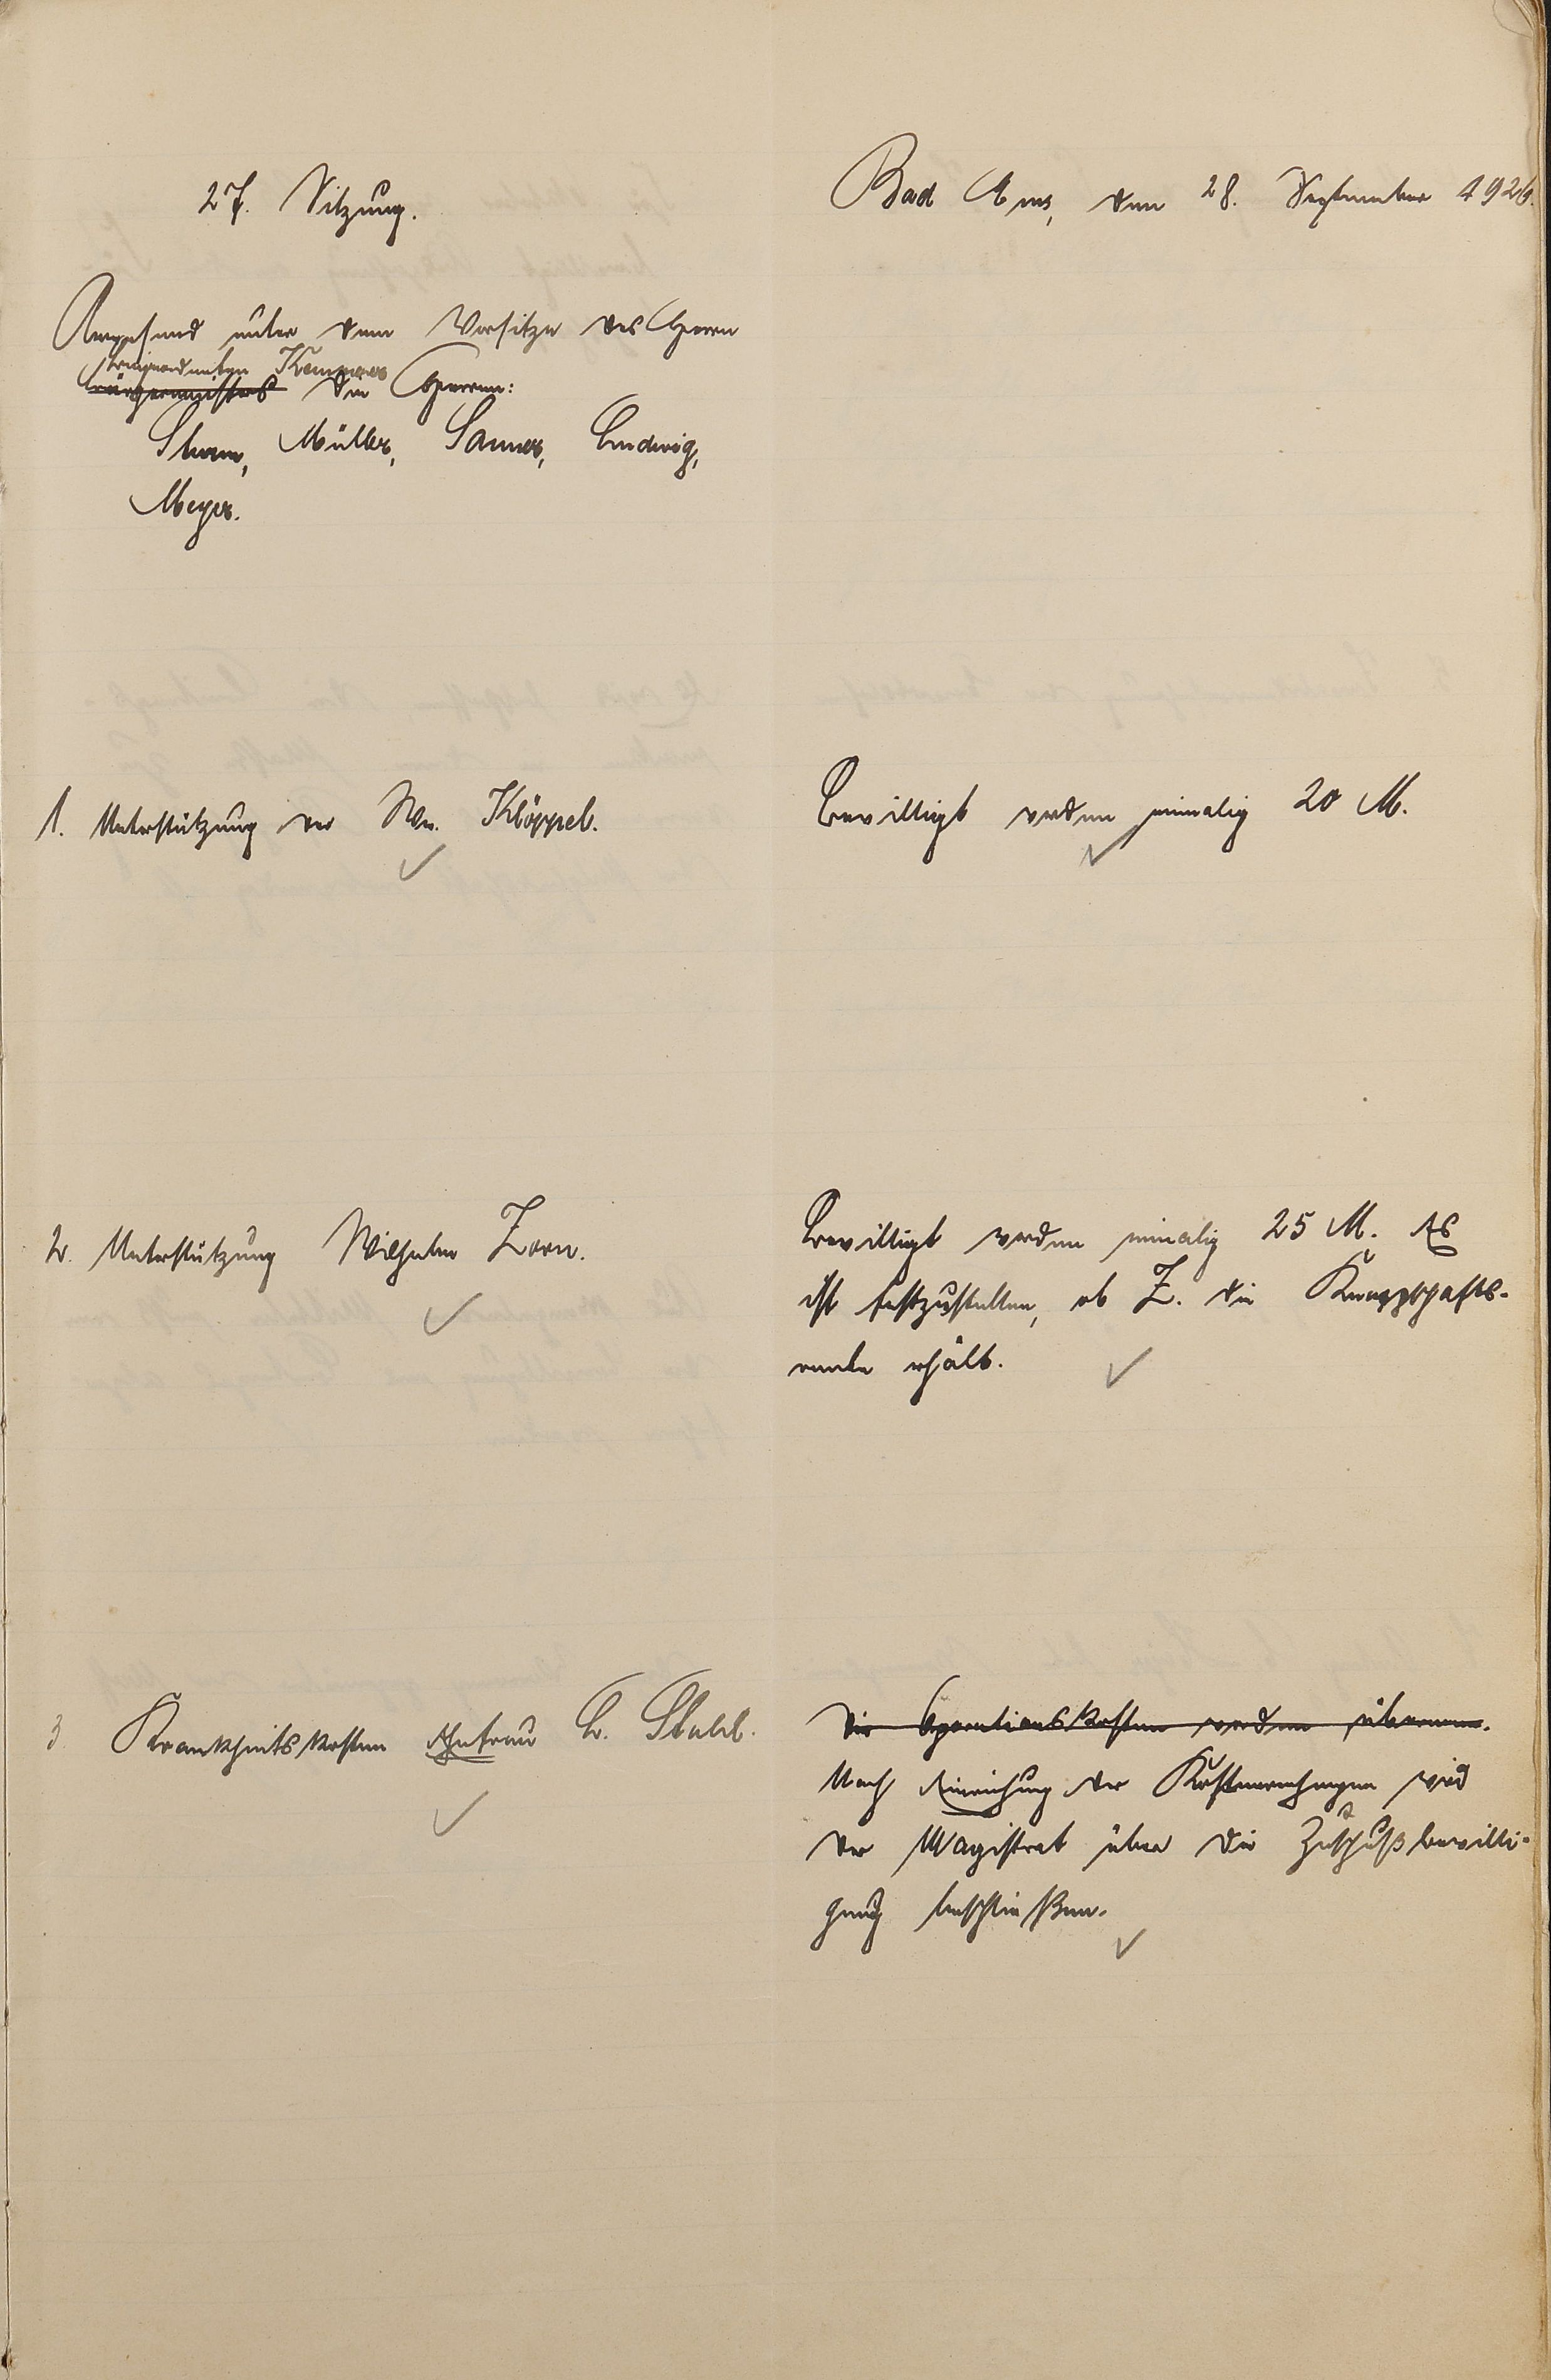 27. Sitzung.
Bad Ems, den 28. September 1926.
Anwesend unter dem Vorsitze des Herrn
Beigeordneten Kemmerer
Bürgermeisters die Herren:
Müller, Sanner, Ludwig,
Meyer.
1. Unterstützung der Ww. Klöppel.
Bewilligt werden einmalig 20 M.
2. Unterstützung Wilhelm Zorn.
Bewilligt werden einmalig 25 M. Es
ist festzustellen, ob Z. die Knappschafts-
rente erhält.
3. Krankheitskosten Ehefrau Stahl.
Die Operationskosten werden übernom.
Nach Einreichung der Kostenrechnungen wird
der Magistrat über die Zuschußbewilli-
gung beschließen.